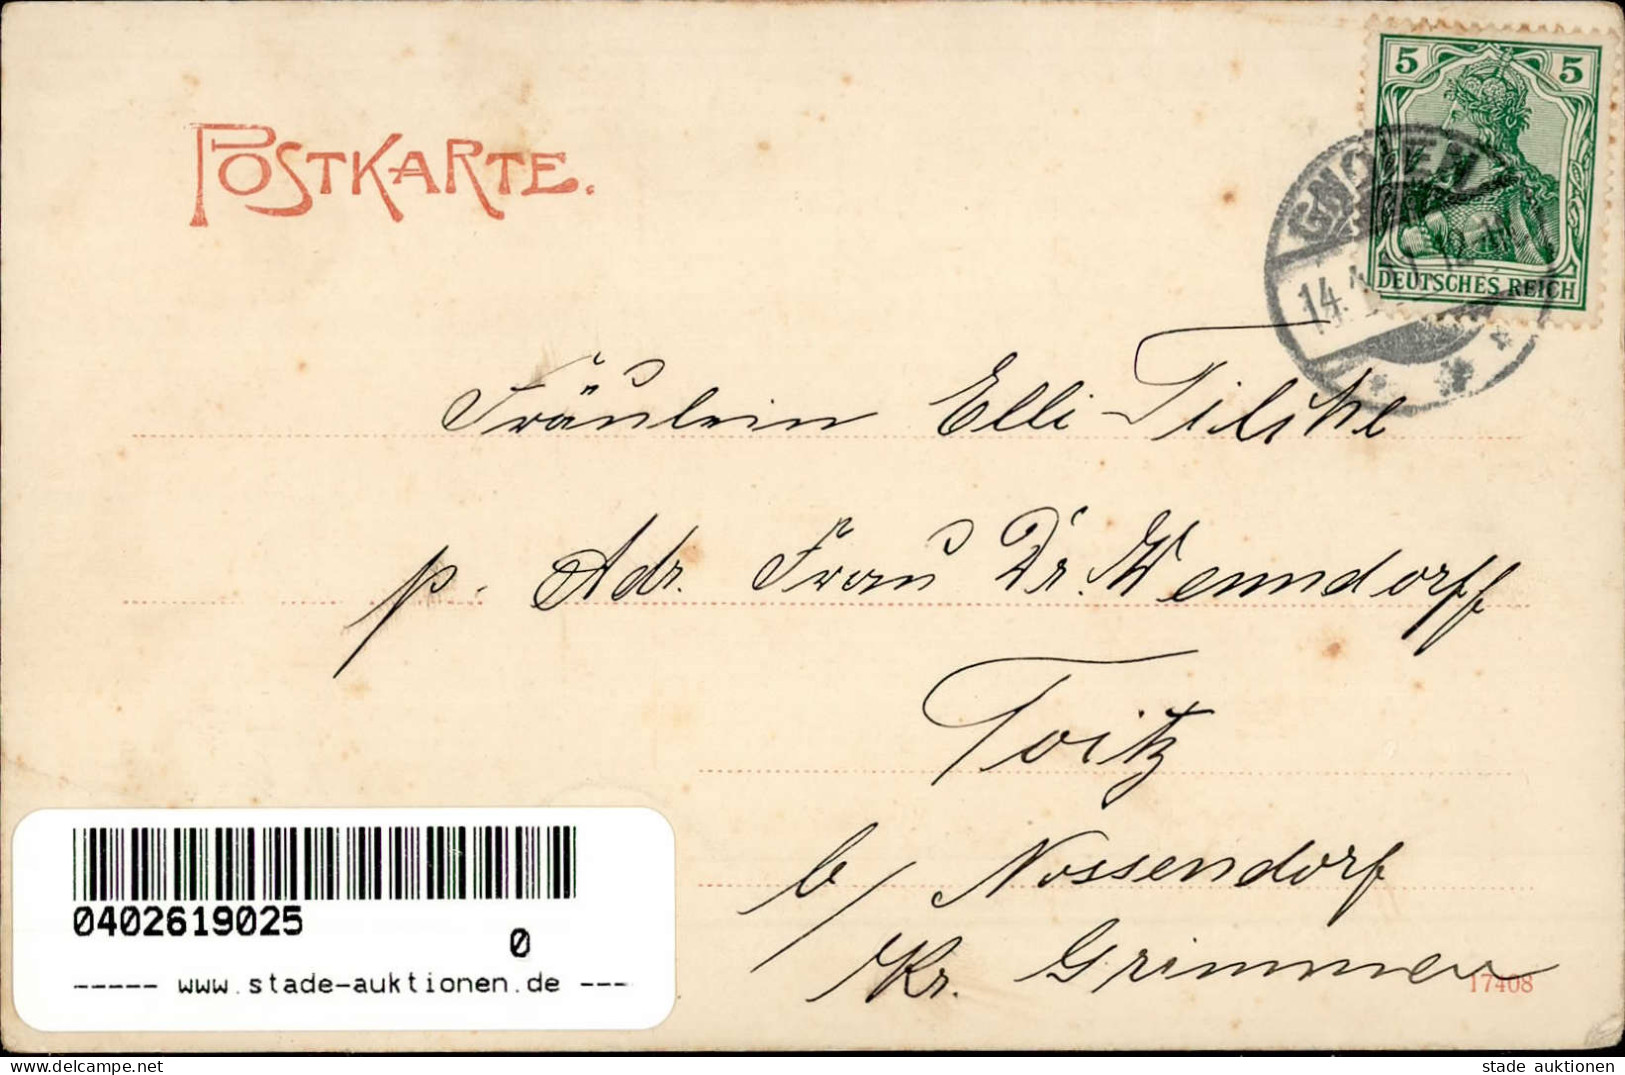 POSTKARTE.
5 5
DEUTSCHES REICH
GNOIEN
14.
Fräulein Elli Tilsche
p. Adr. Frau Dr. Wenndorff
Toitz
b/ Nossendorf
Kr. Grimmen
17408
0402619025
0
----- www.stade-auktionen.de ---
stade auktionen